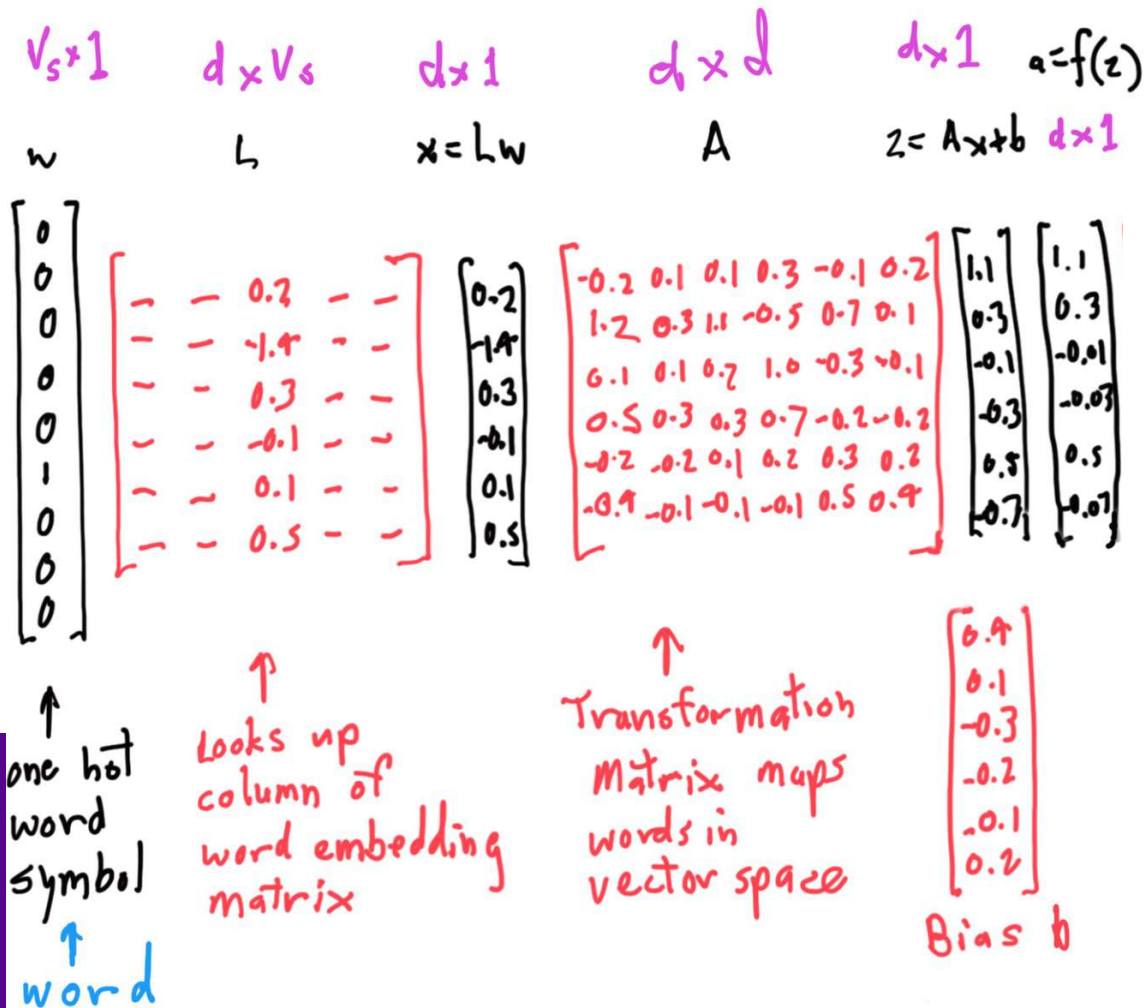 Vs×1 d×Vs d×1 d×d d×1 a=f(z)
w L x=Lw A z=Ax+b d×1
0
0
0
0
0
1
0
0
0
- - 0.2 - -
- - -1.4 - -
- - 0.3 - -
- - -0.1 - -
- - 0.1 - -
- - 0.5 - -
0.2
-1.4
0.3
-0.1
0.1
0.5
-0.2 0.1 0.1 0.3 -0.1 0.2
1.2 0.3 1.1 -0.5 0.7 0.1
0.1 0.1 0.2 1.0 -0.3 -0.1
0.5 0.3 0.3 0.7 -0.2 -0.2
-0.2 -0.2 0.1 0.2 0.3 0.2
-0.4 -0.1 -0.1 -0.1 0.5 0.4
1.1
0.3
-0.1
-0.3
0.5
-0.7
1.1
0.3
-0.01
-0.03
0.5
-0.07
↑
one hot
word
symbol
↑
word
↑
Looks up
column of
word embedding
matrix
↑
Transformation
Matrix maps
words in
vector space
0.4
0.1
-0.3
-0.2
-0.1
0.2
Bias b